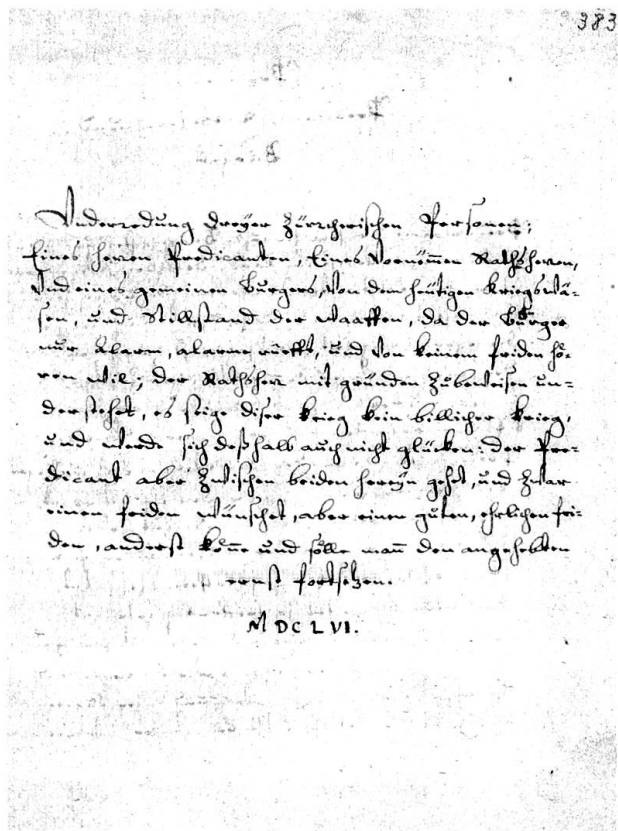 383
Underredung dreyer Zürcherischen Personen;
Eines herren Predicanten, Eines Vornem̄en Rathsherren,
Und eines gemeinen Burgers, Von dem heütigen Kriegswä-
sen, und Stillstand der Waaffen, da der Burger
nur Alarm, alarme rüefft, und von keinem friden hö-
ren wil; der Rathsherr mit gründen Zubeweisen un-
derstehet, es seige diser krieg kein billicher krieg,
und werde sich deßhalb auch nicht glücken: der Pre-
dicant aber Zwischen beiden hereyn gehet, und Zwar
einen friden wünschet, aber einen guten, ehrlichen fri-
den, anderst kön̄e und sölle man̄ den angehebten
ernst fortsetzen.
MDCLVI.